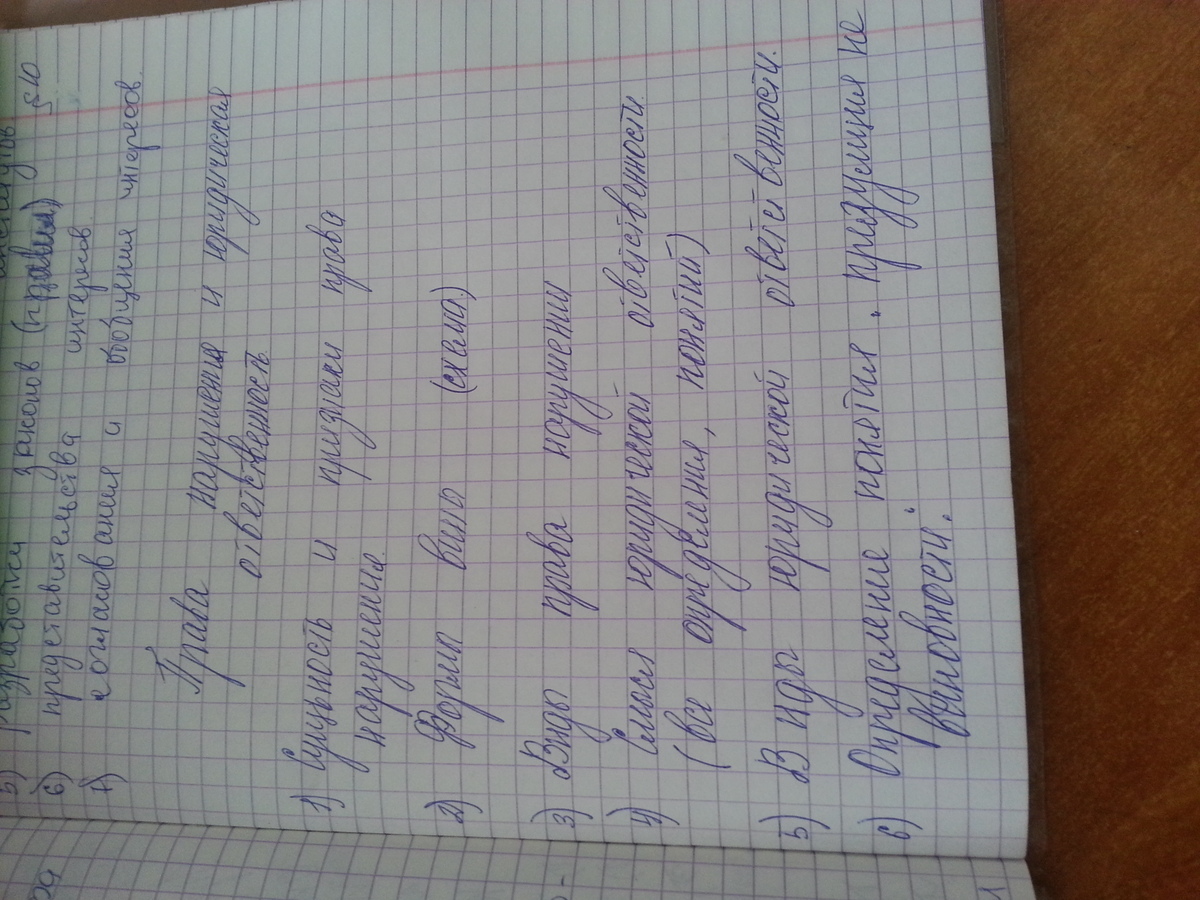 5) разработки законов
6) представительства интересов
7) согласования и обобщения интересов.
§10
Права нарушения и юридическая
ответственность
1) Сущность и признаки права
нарушения.
2) Формы вины (схема)
3) Виды права нарушении
4) Смысл юридической ответственности.
(все определения, понятий)
5) Виды юридической ответственности.
6) Определение понятия „презумция не
виновности".